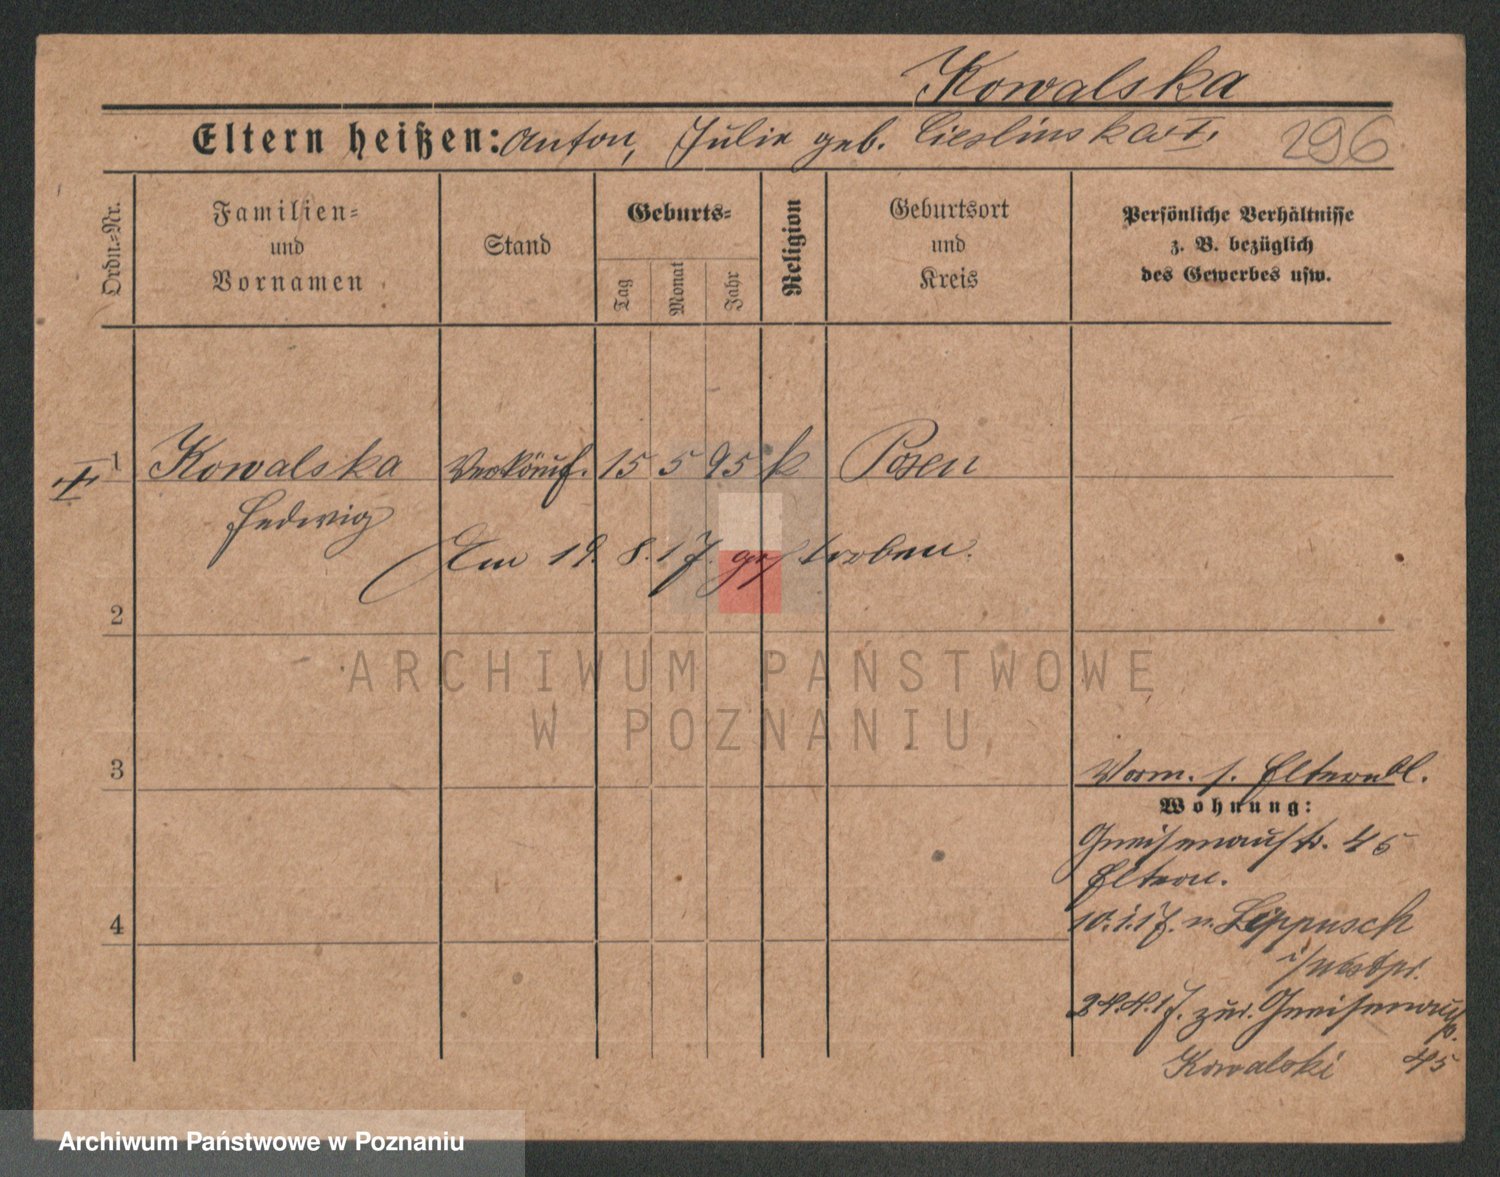 Kowalska
Eltern heißen: Anton, Julie geb. Cieslinska
296
Ordn.-Nr.
Familien-
und
Vornamen
Stand
Geburts-
Tag
Monat
Jahr
Religion
Geburtsort
und
Kreis
Persönliche Verhältnisse
z. B. bezüglich
des Gewerbes usw.
1 Kowalska Verkäuf. 15 5 95 k Posen
Hedwig
Am 19. 8. 17. gestorben.
2
ARCHIWUM PAŃSTWOWE
W POZNANIU
3
Verm. s. Elternbl.
Wohnung:
Gneisenaustr. 45
Eltern.
4
10.1.17. n. Leppusch
24.4.17. zur. Gneisenaustr.
Kowalski 45
Archiwum Państwowe w Poznaniu